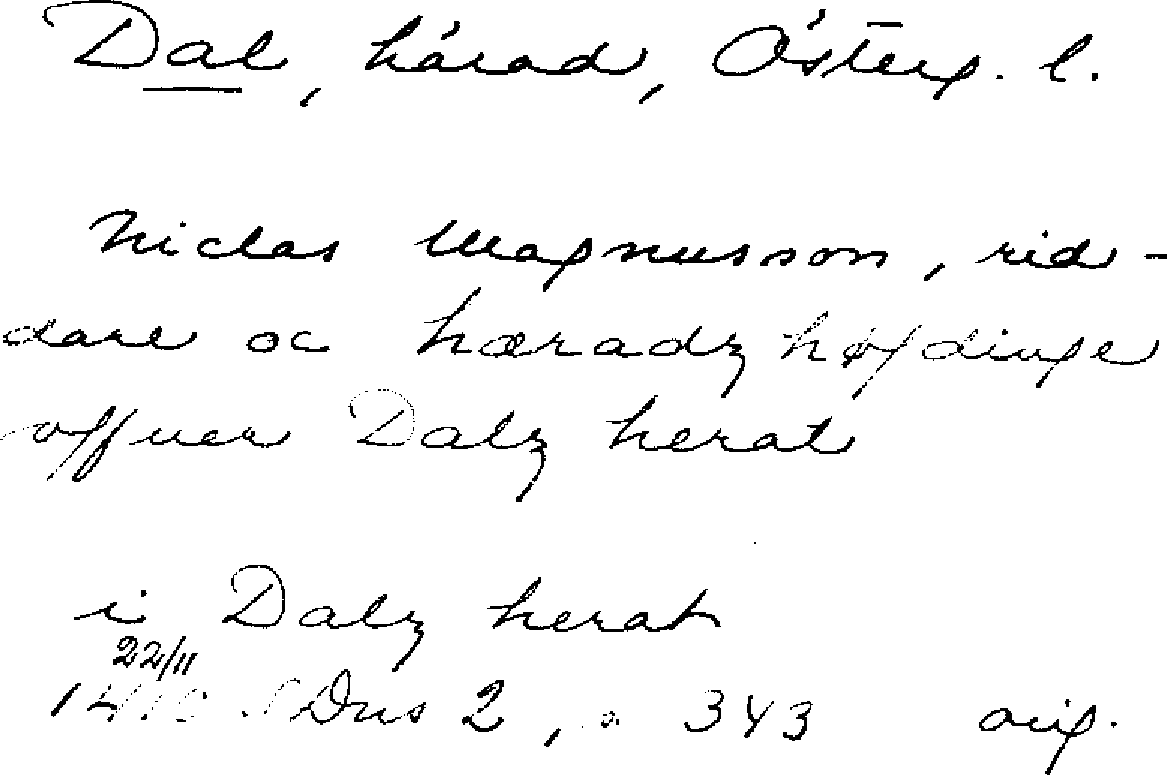 Dal, härad, Österg. l.
Niclas Magnusson, rid-
dare oc hæradz høfdinge
offuer Dalz herat
i Dalz herat
22/11
1410 SDns 2, s 343 orig.